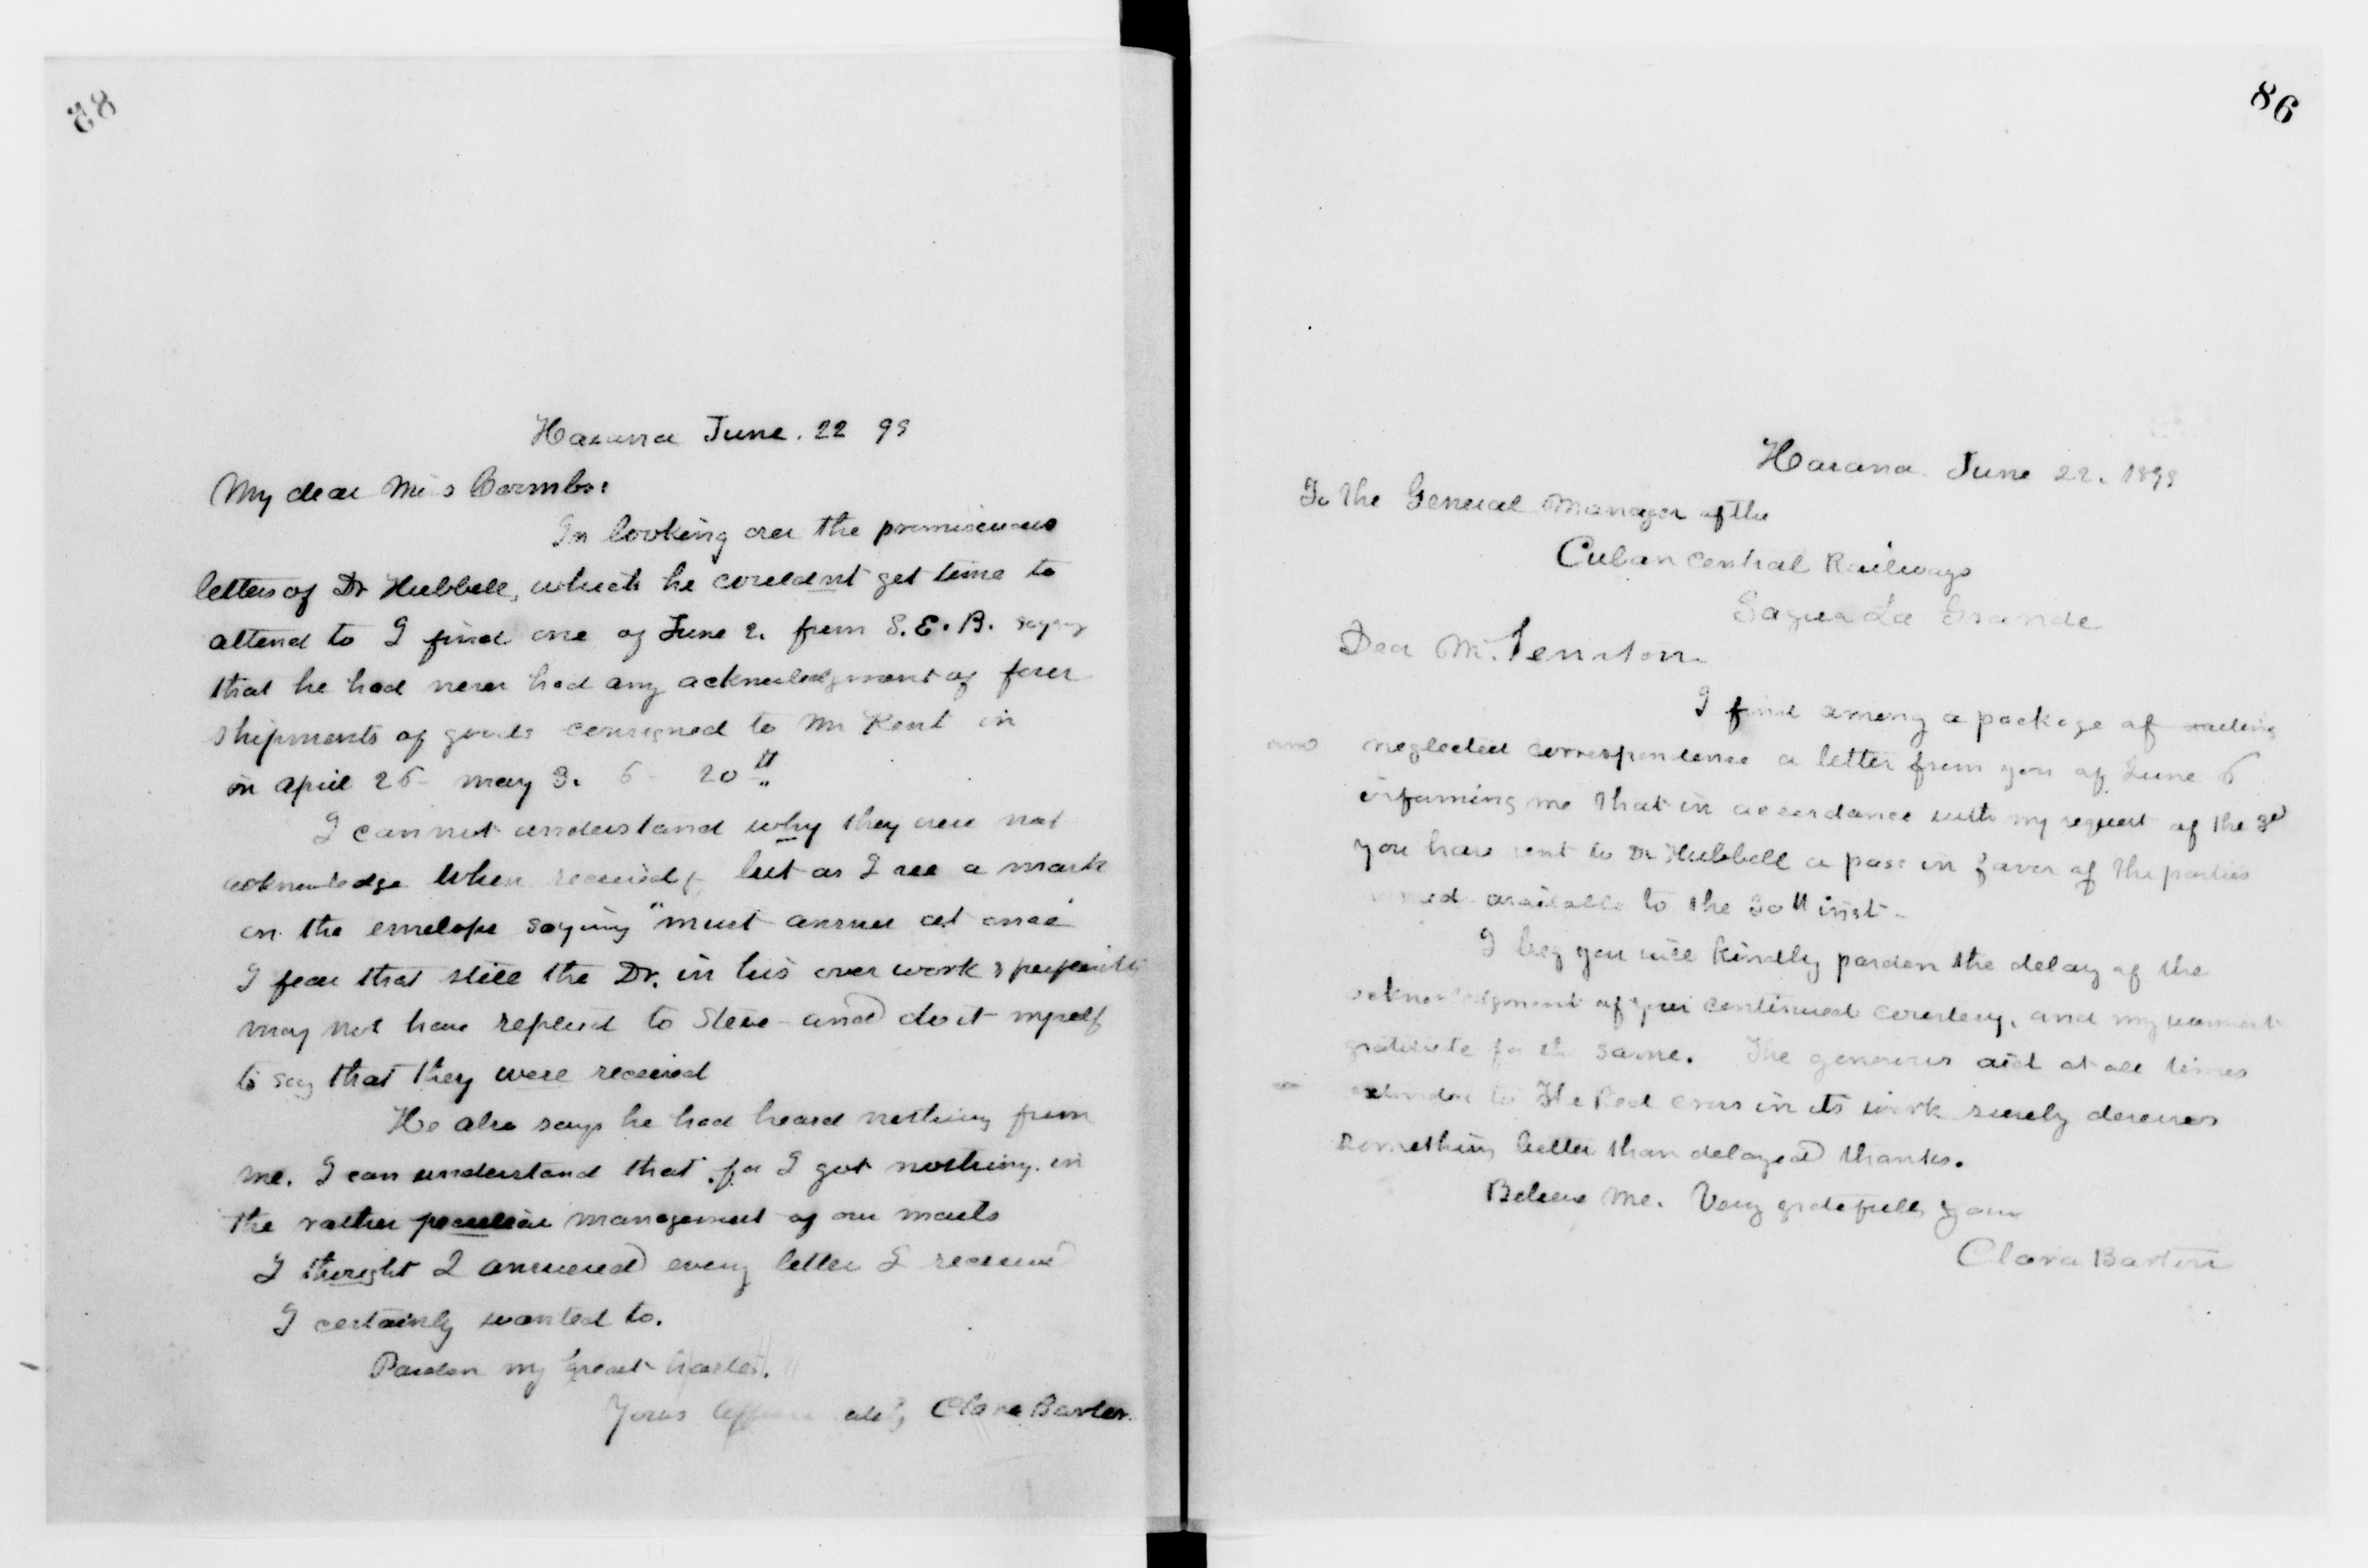 85
Havana June. 22 99
My dear Miss Coombs:
In looking over the promiscuous
letters of Dr Hubbell, which he couldnt get time to
attend to I find one of June 2. from S. E. B. saying
that he had never had any acknowledgment of four
shipments of goods consigned to Mr Kent in
in April 25 - May 3. 5 - 20th
I cannot understand why they were not
acknowledge when received, but as I see a mark
on the envelope saying "must answer at once"
I fear that still the Dr. in his over work &
may not have replied to Steve - and do it myself
to say that they were received
He also says he had heard nothing from
me. I can understand that for I got nothing in
the rather peculiar management of our mails
I thought I answered every letter I received
I certainly wanted to.
Pardon my great haste.
Yours affectionately Clara Barton.
86
Havana June 22. 1899
To the General Manager of the
Cuban Central Railways
Sagua La Grande
Dear Mr.
I find among a package of waiting
and neglected correspondence a letter from you of June 6
informing me that in accordance with my request of the 3d
you have sent to Dr Hubbell a pass in favor of the parties
available to the 30th inst -
I beg you will kindly pardon the delay of the
acknowledgment of your continued courtesy, and my warmest
gratitude for the same. The generous aid at all times
extended to The Red Cross in its work surely deserves
something better than delayed thanks.
Believe me. Very gratefully yours
Clara Barton